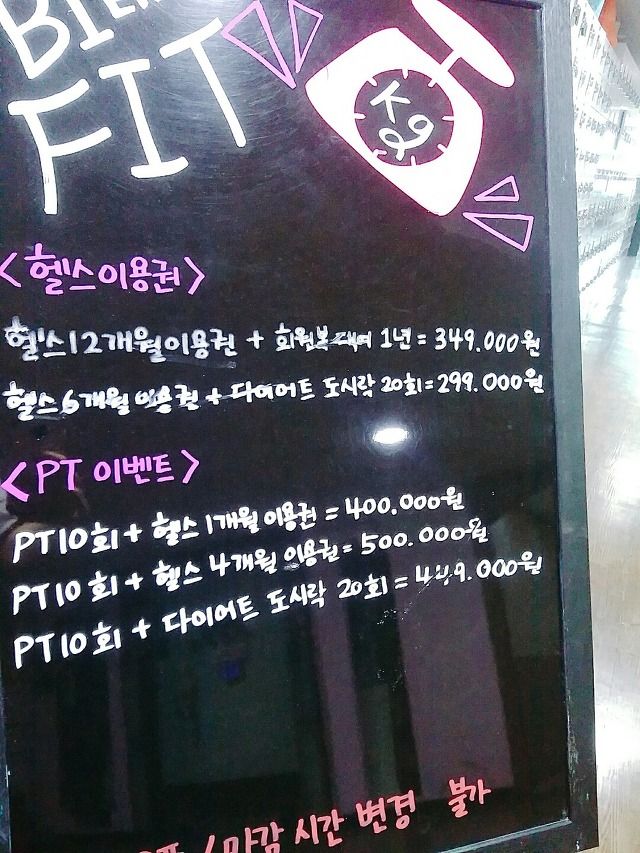 FIT
Kg
<헬스이용권>
헬스12개월이용권 + 회원복 대여 1년 = 349.000원
헬스 6개월 이용권 + 다이어트 도시락 20회 = 299.000원
<PT 이벤트>
PT10회 + 헬스 1개월 이용권 = 400.000원
PT10 회 + 헬스 4개월 이용권 = 500.000원
PT10회 + 다이어트 도시락 20회 = 449.000원
/ 마감 시간 변경 불가